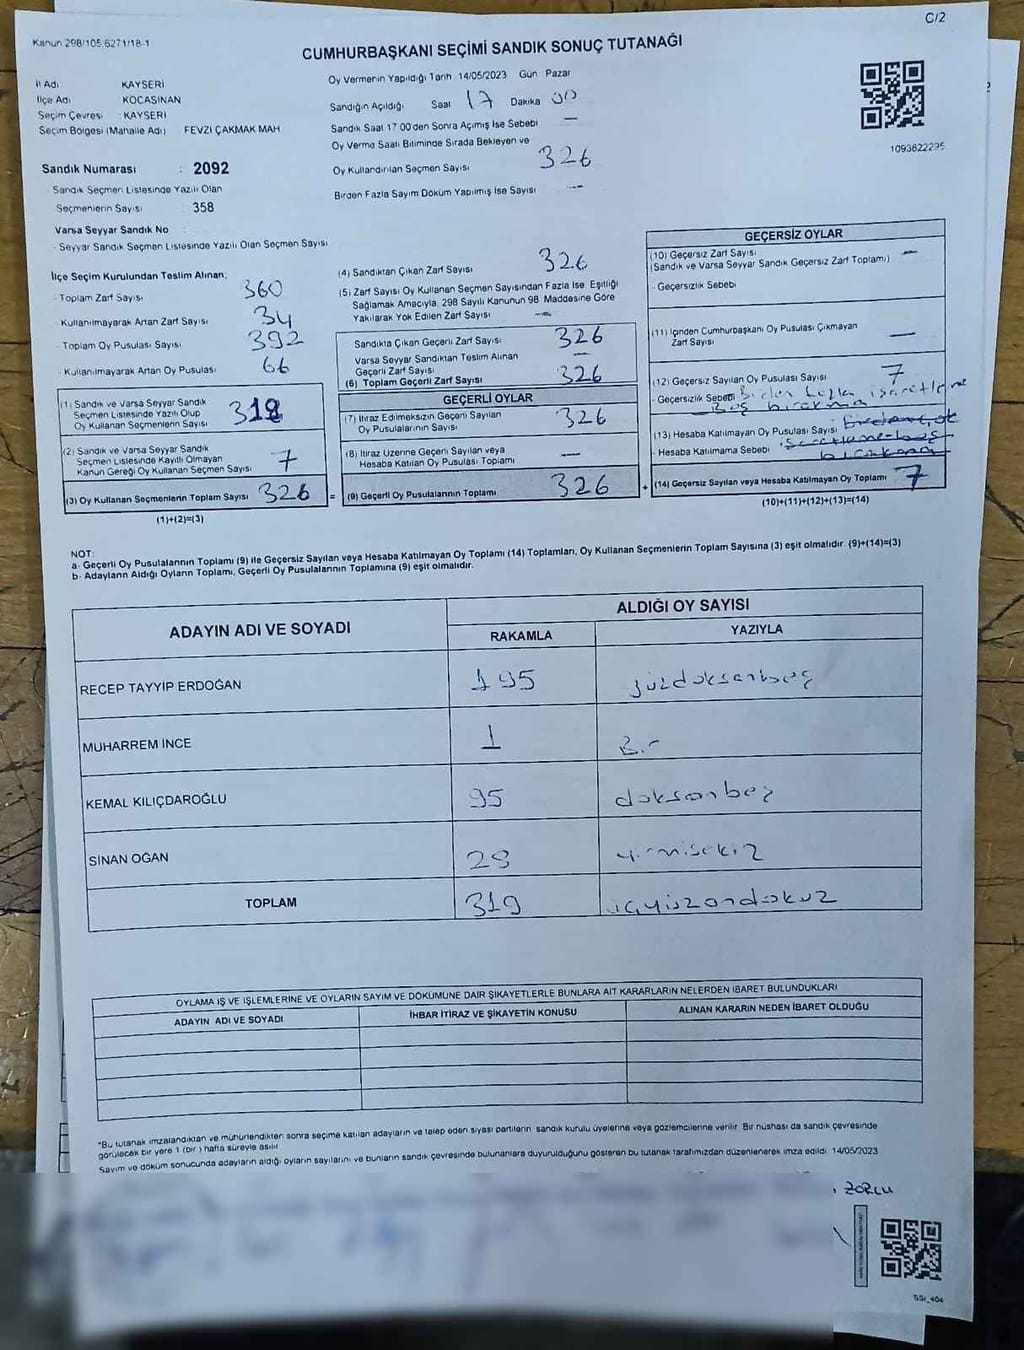 C/2
Kanun 298/105 6271/18-1
CUMHURBAŞKANI SEÇİMİ SANDIK SONUÇ TUTANAĞI
İl Adı KAYSERİ
İlçe Adı KOCASİNAN
Seçim Çevresi KAYSERİ
Seçim Bölgesi (Mahalle Adı) FEVZİ ÇAKMAK MAH
Sandık Numarası : 2092
Sandık Seçmen Listesinde Yazılı Olan
Seçmenlerin Sayısı 358
Varsa Seyyar Sandık No
- Seyyar Sandık Seçmen Listesinde Yazılı Olan Seçmen Sayısı
Oy Vermenin Yapıldığı Tarih 14/05/2023 Gün Pazar
Sandığın Açıldığı Saat 17 Dakika 00
Sandık Saat 17 00'den Sonra Açımış İse Sebebi —
Oy Verme Saati Bitiminde Sırada Bekleyen ve
Oy Kullandırılan Seçmen Sayısı 326
Birden Fazla Sayım Döküm Yapılmış İse Sayısı —
1093622295
İlçe Seçim Kurulundan Teslim Alınan;
- Toplam Zarf Sayısı 360
- Kullanılmayarak Artan Zarf Sayısı 34
- Toplam Oy Pusulası Sayısı 392
- Kullanılmayarak Artan Oy Pusulası 66
(1) Sandık ve Varsa Seyyar Sandık
Seçmen Listesinde Yazılı Olup
Oy Kullanan Seçmenlerin Sayısı
(2) Sandık ve Varsa Seyyar Sandık
Seçmen Listesinde Kayıtlı Olmayan
Kanun Gereği Oy Kullanan Seçmen Sayısı 7
(3) Oy Kullanan Seçmenlerin Toplam Sayısı 326 =
(1)+(2)=(3)
(4) Sandıktan Çıkan Zarf Sayısı 326
(5) Zarf Sayısı Oy Kullanan Seçmen Sayısından Fazla İse, Eşitliği
Sağlamak Amacıyla, 298 Sayılı Kanunun 98. Maddesine Göre
Yakılarak Yok Edilen Zarf Sayısı —
Sandıkta Çıkan Geçerli Zarf Sayısı 326
Varsa Seyyar Sandıktan Teslim Alınan
Geçerli Zarf Sayısı —
(6) Toplam Geçerli Zarf Sayısı 326
GEÇERLİ OYLAR
(7) İtiraz Edilmeksizin Geçerli Sayılan
Oy Pusulalarının Sayısı 326
(8) İtiraz Üzerine Geçerli Sayılan veya
Hesaba Katılan Oy Pusulası Toplamı —
(9) Geçerli Oy Pusulalarının Toplamı 326 +
GEÇERSİZ OYLAR
(10) Geçersiz Zarf Sayısı —
(Sandık ve Varsa Seyyar Sandık Geçersiz Zarf Toplamı)
- Geçersizlik Sebebi
(11) İçinden Cumhurbaşkanı Oy Pusulası Çıkmayan —
Zarf Sayısı
(12) Geçersiz Sayılan Oy Pusulası Sayısı 7
- Geçersizlik Sebebi Birden fazla işaretleme
Boş bırakma
(13) Hesaba Katılmayan Oy Pusulası Sayısı Birden çok
- Hesaba Katılmama Sebebi işaretleme-boş
bırakma
(14) Geçersiz Sayılan veya Hesaba Katılmayan Oy Toplamı 7
(10)+(11)+(12)+(13)=(14)
NOT:
a- Geçerli Oy Pusulalarının Toplamı (9) ile Geçersiz Sayılan veya Hesaba Katılmayan Oy Toplamı (14) Toplamları, Oy Kullanan Seçmenlerin Toplam Sayısına (3) eşit olmalıdır. (9)+(14)=(3)
b- Adayların Aldığı Oyların Toplamı, Geçerli Oy Pusulalarının Toplamına (9) eşit olmalıdır.
ADAYIN ADI VE SOYADI ALDIĞI OY SAYISI
RAKAMLA YAZIYLA
RECEP TAYYİP ERDOĞAN 195 yüzdoksanbeş
MUHARREM İNCE 1 Bir
KEMAL KILIÇDAROĞLU 95 doksanbeş
SİNAN OĞAN 28 yirmisekiz
TOPLAM 319 üçyüzondokuz
OYLAMA İŞ VE İŞLEMLERİNE VE OYLARIN SAYIM VE DÖKÜMÜNE DAİR ŞİKAYETLERLE BUNLARA AİT KARARLARIN NELERDEN İBARET BULUNDUKLARI
ADAYIN ADI VE SOYADI İHBAR İTİRAZ VE ŞİKAYETİN KONUSU ALINAN KARARIN NEDEN İBARET OLDUĞU
*Bu tutanak imzalandıktan ve mühürlendikten sonra seçime katılan adayların ve talep eden siyasi partilerin sandık kurulu üyelerine veya gözlemcilerine verilir. Bir nüshası da sandık çevresinde
görülecek bir yere 1 (bir) hafta süreyle asılır.
Sayım ve döküm sonucunda adayların aldığı oyların sayılarını ve bunların sandık çevresinde bulunanlara duyurulduğunu gösteren bu tutanak tarafımızdan düzenlenerek imza edildi. 14/05/2023
ZORLU
SSI_404